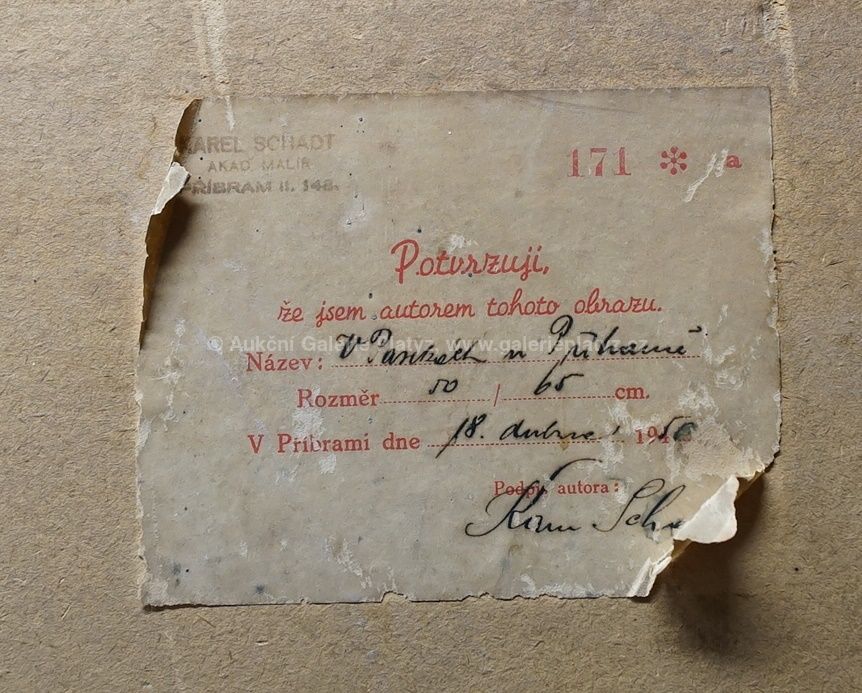 KAREL SCHADT
AKAD. MALÍŘ
PŘÍBRAM II. 148.
171 * a
Potvrzuji,
že jsem autorem tohoto obrazu.
© Aukční Galerie Platýz, www.galerieplatyz.cz
Název: V u Příbramě
Rozměr 50 / 65 cm.
V Příbrami dne 18. dubna 1950
Podpis autora:
Karel Scha